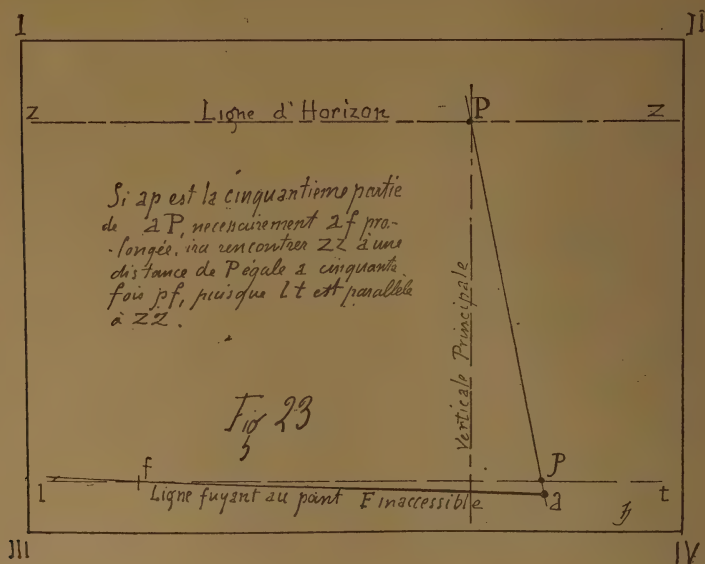 I II
Z Ligne d'Horizon P Z
Si ap est la cinquantième partie
de aP, necessairement af pro-
-longée, ira rencontrer ZZ à une
distance de P égale a cinquante
fois pf, puisque lt est parallèle
à ZZ.
Verticale Principale
Fig 23
l f p t
Ligne fuyant au point F inaccessible a
III IV